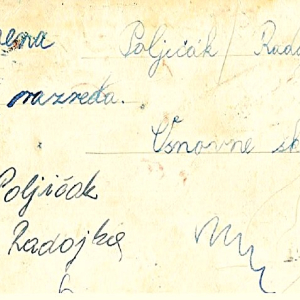 Poljičák / Rado
razreda.
Osnovne šk
Poljičák
Radojka